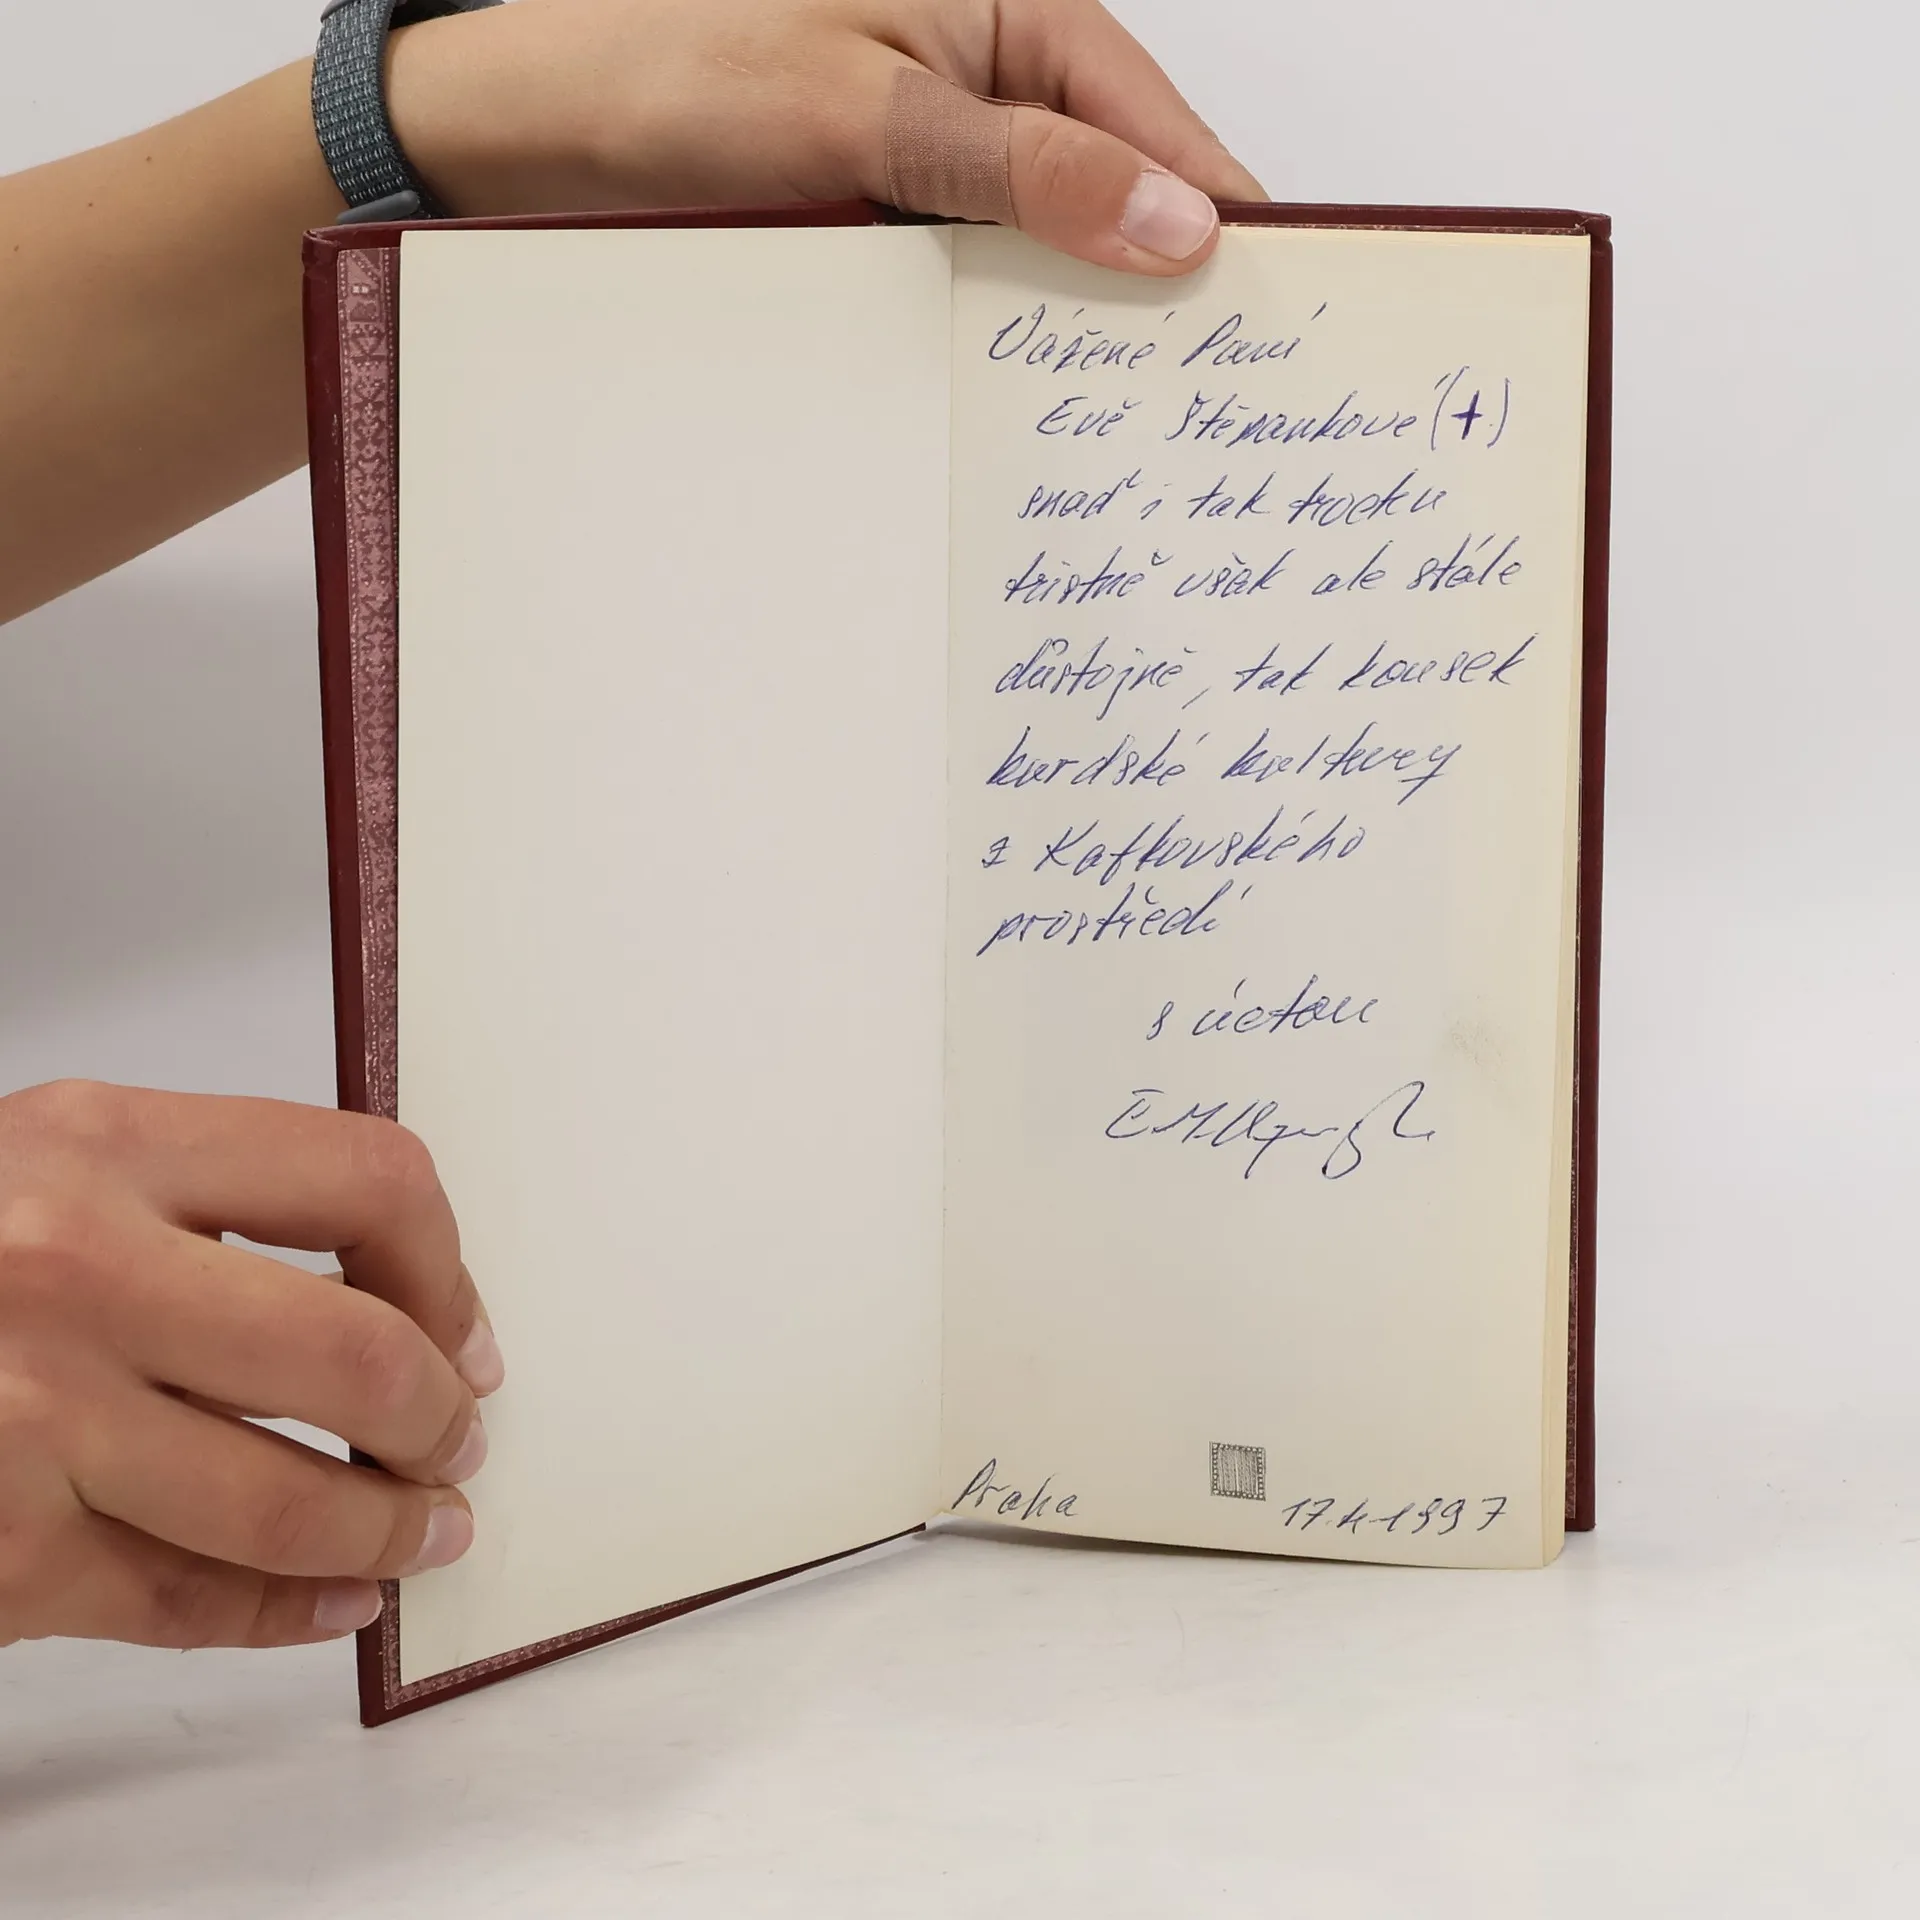 Vážené Paní
Evě Štěpánkove (+)
snad i tak trochu
tristně však ale stále
důstojně, tak kousek
kurdské kultury
z Kafkovského
prostředí
s úctou
Praha 1997